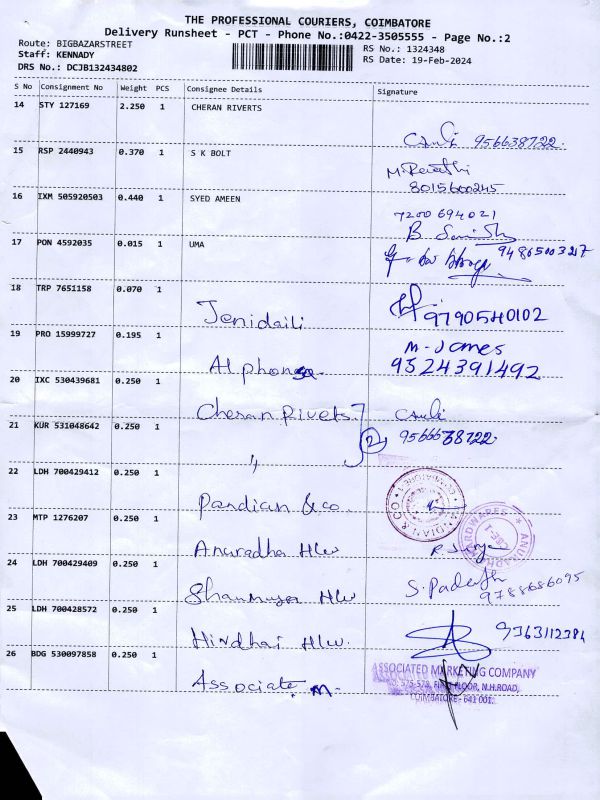 THE PROFESSIONAL COURIERS, COIMBATORE
Delivery Runsheet - PCT - Phone No.:0422-3505555 - Page No.:2
Route: BIGBAZARSTREET
Staff: KENNADY
DRS No.: DCJB132434802
RS No.: 1324348
RS Date: 19-Feb-2024
S No Consignment No Weight PCS Consignee Details Signature
14 STY 127169 2.250 1 CHERAN RIVERTS
956638722
15 RSP 2440943 0.370 1 S K BOLT
M. Revathi
8015600245
16 IXM 505920503 0.440 1 SYED AMEEN
7200 694021
17 PON 4592035 0.015 1 UMA
9486503217
18 TRP 7651158 0.070 1
Jenidaili 9790540102
19 PRO 15999727 0.195 1
Alphonse M. James
9524391492
20 IXC 530439681 0.250 1
Cheran Rivets
21 KUR 531048642 0.250 1
" 2
22 LDH 700429412 0.250 1
Pandian & co.
23 MTP 1276207 0.250 1
Anuradha H/w
24 LDH 700429409 0.250 1
H/w 9788686095
25 LDH 700428572 0.250 1
Hindhai H/w. 9363112384
26 BDG 530097858 0.250 1
Associate. M.
ASSOCIATED MARKETING COMPANY
FLOOR, N.H.ROAD,
COIMBATORE - 641 001.